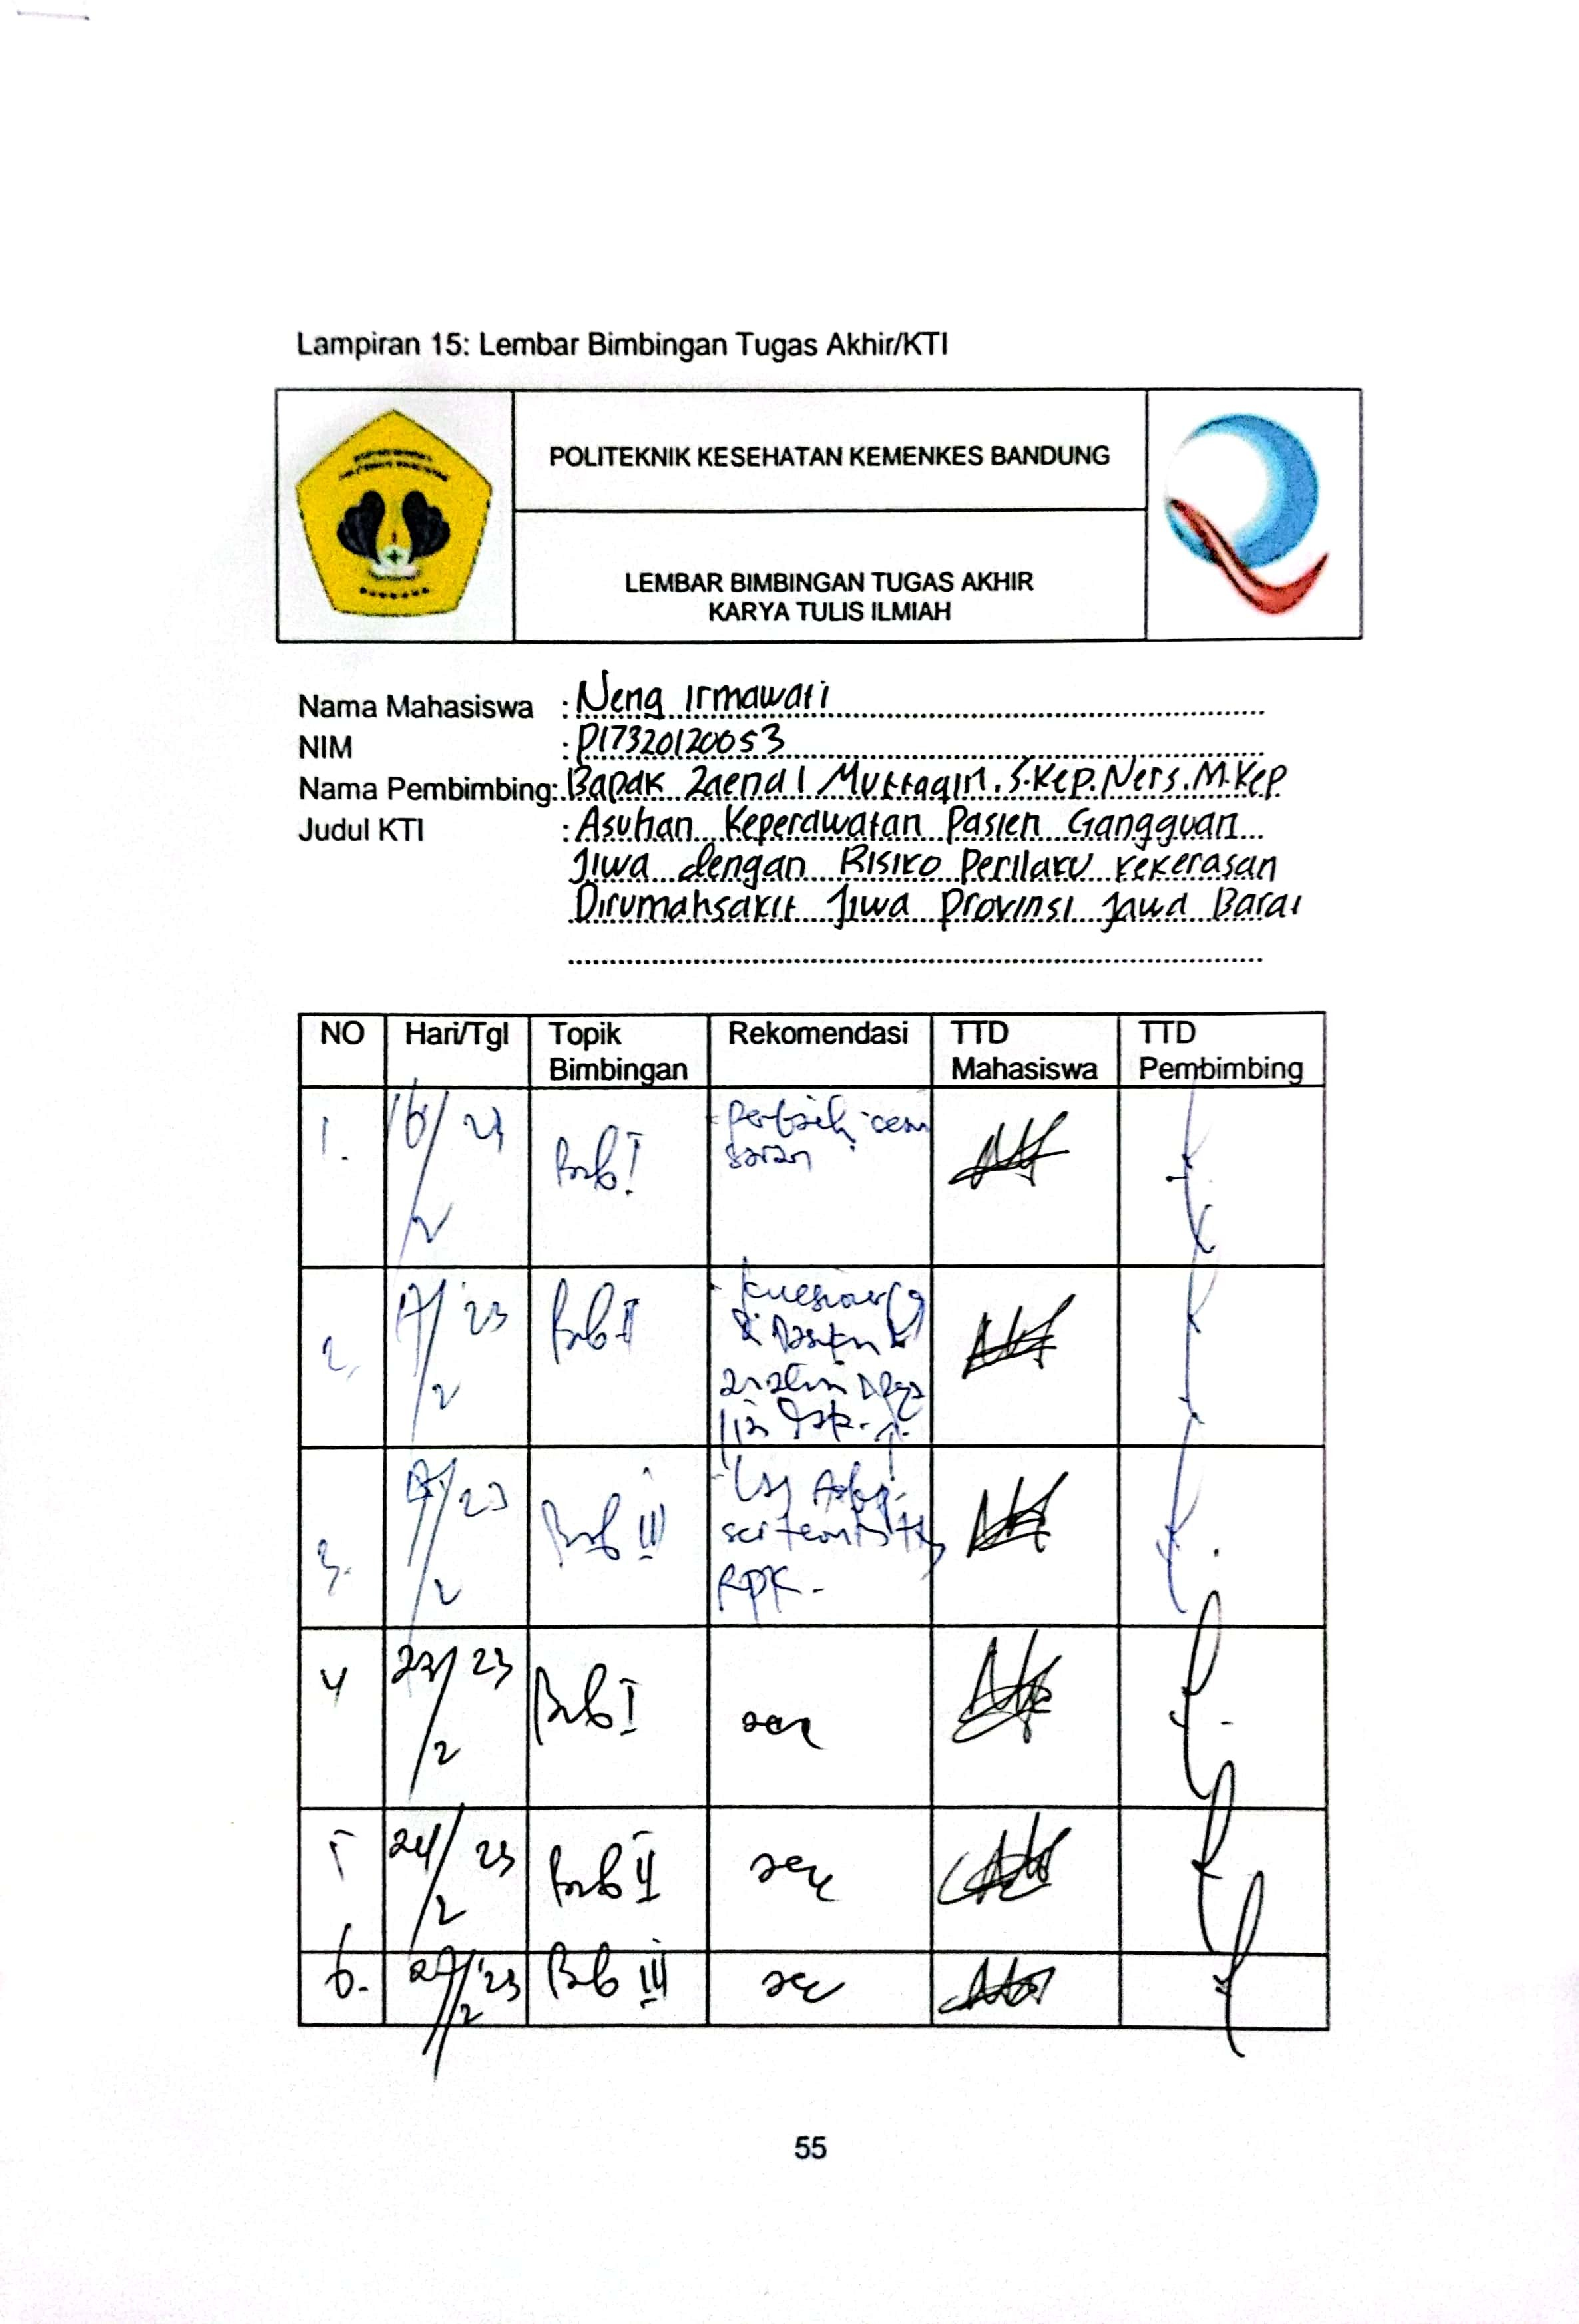 Lampiran 15: Lembar Bimbingan Tugas Akhir/KTI
POLITEKNIK KESEHATAN KEMENKES BANDUNG
LEMBAR BIMBINGAN TUGAS AKHIR
KARYA TULIS ILMIAH
Nama Mahasiswa : Neng Irmawati
NIM : P17320120053
Nama Pembimbing: Bapak Zaenal Muttaqin. S.Kep.Ners.M.Kep
Judul KTI : Asuhan Keperawatan Pasien Gangguan
Jiwa dengan Risiko Perilaku Kekerasan
Dirumahsakit Jiwa Provinsi Jawa Barat
NO Hari/Tgl Topik Bimbingan Rekomendasi TTD Mahasiswa TTD Pembimbing
1. 16/2 23 Bab I
saran
2. 17/2 '23 Bab II
3. /2 23 Bab III
RPK.
4 23/2 23 Bab I acc
5 24/2 23 Bab II acc
6. 27/2 '23 Bab III acc
55